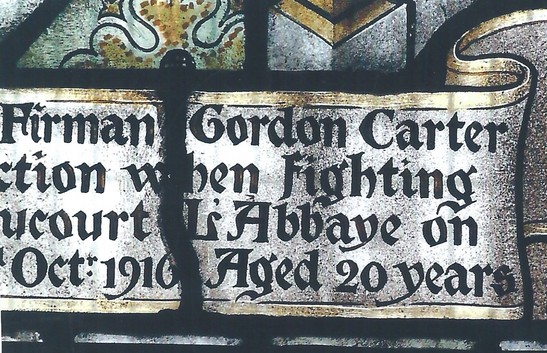 Firman Gordon Carter
ction when fighting
ucourt L'Abbaye on
Octr: 1916 Aged 20 years